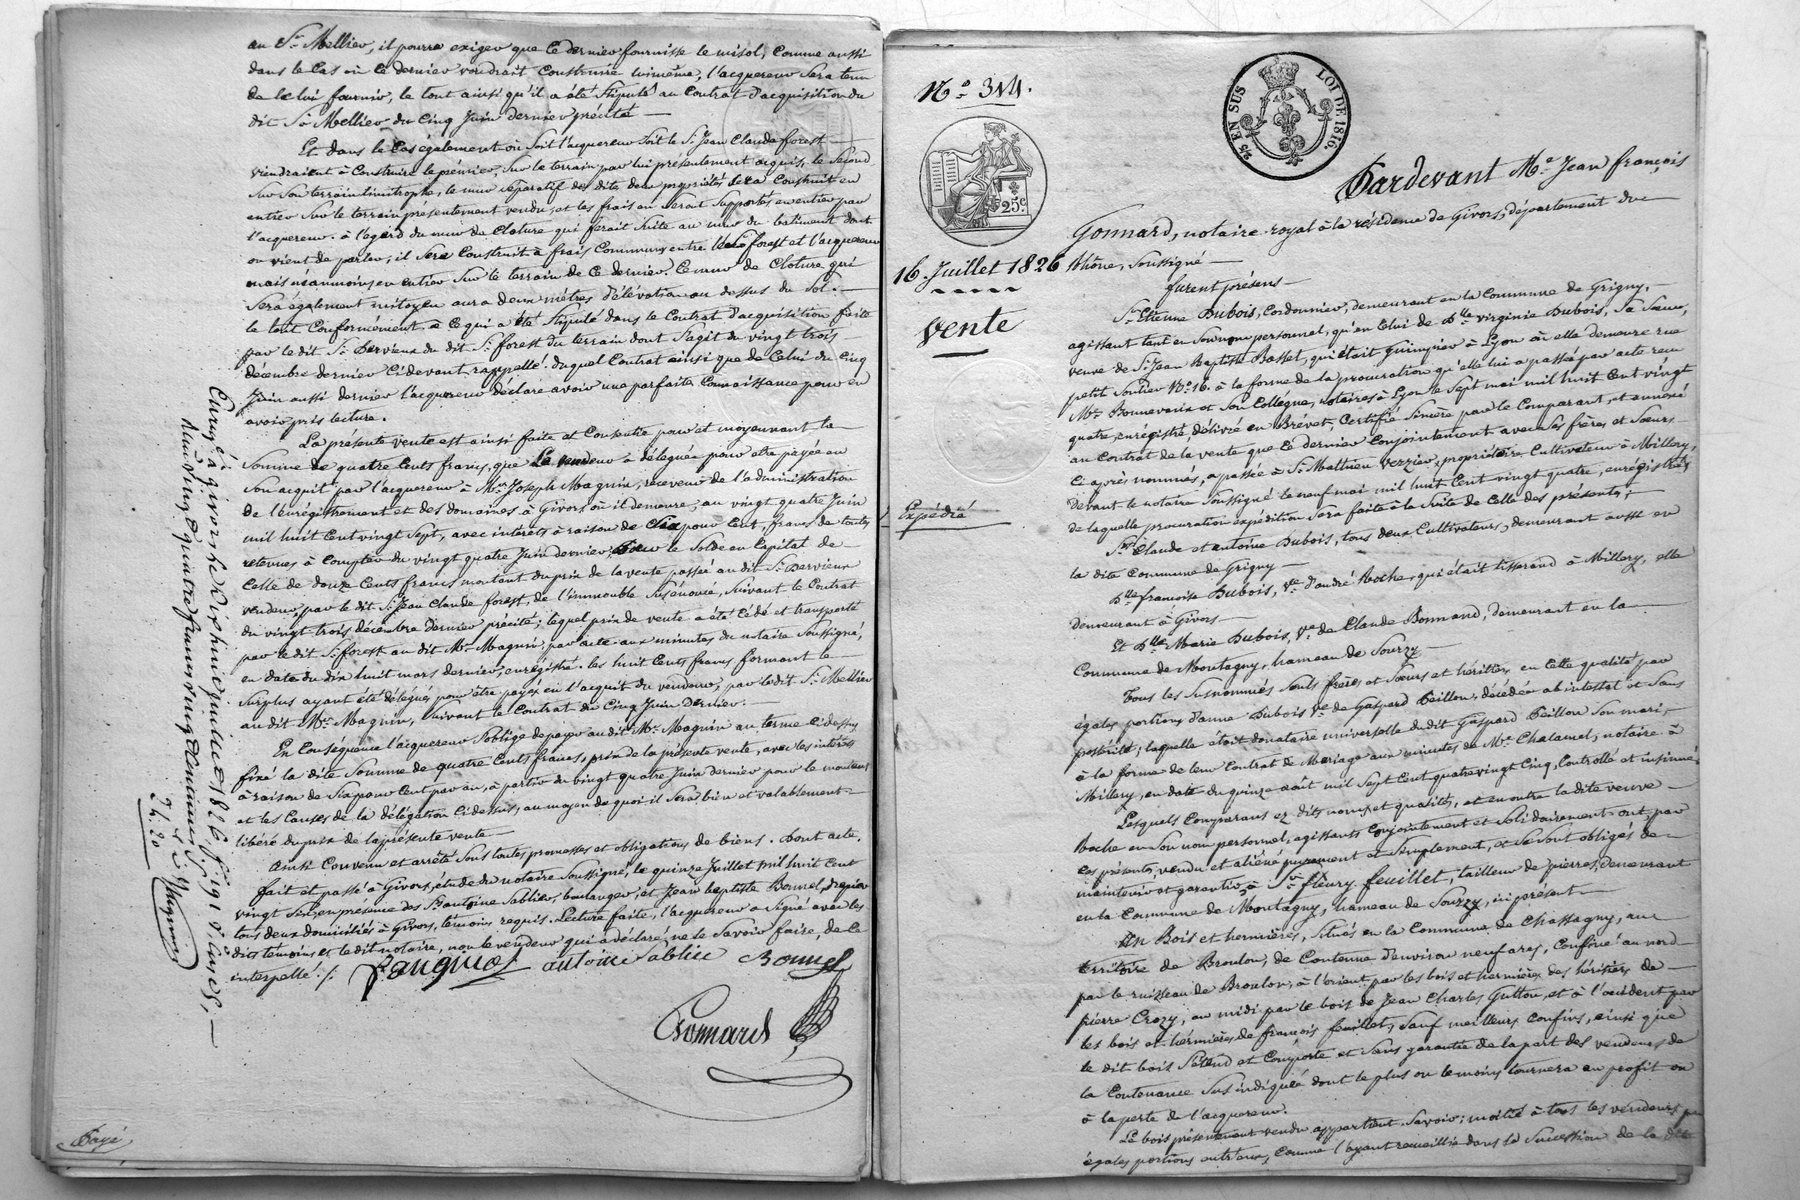 au Sr. Mellier, il pourra exiger que ce dernier fournisse le misol, comme aussi
dans le cas où ce dernier voudrait construire luimême, l'acquereur sera tenu
de le lui fournir, le tout ainsi qu'il a été stipulé au contrat d'acquisition du
dit Sr. Mellier du cinq juin dernier précité —
Et dans le cas également où soit l'acquereur soit le Sr. Jean Claude forest —
viendraient à construire le premier, sur le terrain par lui présentement acquis, le second
sur son terrain limitrophe, le mur séparatif des dites deux propriétés sera construit en
entier sur le terrain présentement vendu, et les frais en seront supportés en entier par
l'acquereur. à l'égard du mur de cloture qui ferait suite au mur du batiment dont
on vient de parler, il sera construit à frais communs entre le Sr. forest et l'acquereur
mais néanmoins en entier sur le terrain de ce dernier. Ce mur de cloture qui
sera également mitoyen aura deux mètres d'élévation au dessus du sol. —
le tout conformément à ce qui a été stipulé dans le contrat d'acquisition faite
par le dit Sr. Dervieux du dit Sr. forest du terrain dont s'agit du vingt trois
décembre dernier cidevant rappellé. duquel contrat ainsi que de celui du cinq
juin aussi dernier l'acquereur déclare avoir une parfaite connaissance pour en
avoir pris lecture.
La présente vente est ainsi faite et consentie pour et moyennant la
somme de quatre cents francs, que le vendeur a déléguée pour etre payée en
son acquit par l'acquereur à Mr. Joseph Magnin, receveur de l'administration
de l'enregistrement et des domaines à Givors où il demeure, au vingt quatre juin
mil huit cent vingt sept, avec intérets à raison de six pour cent, francs de toutes
retenues, à compter du vingt quatre juin dernier, pour le solde en capital de
celle de douze cents francs montant du prix de la vente passée au dit Sr. Dervieux
vendeur, par le dit Sr. Jean Claude forest, de l'immeuble susénoncé, suivant le contrat
du vingt trois décembre dernier précité; lequel prix de vente a été cédé et transporté
par le dit Sr. forest au dit Mr. Magnin, par acte aux minutes du notaire soussigné,
en date du dix huit mars dernier, enregistré. les huit cents francs formant le
surplus ayant été délégués pour être payés en l'acquit du vendeur, par ledit Sr. Mellier
au dit Mr. Magnin, suivant le contrat du cinq juin dernier. —
En conséquence l'acquereur s'oblige de payer au dit Mr. Magnin au terme cidessus
fixé la dite somme de quatre cents francs, prix de la présente vente, avec les intérets
à raison de six pour cent par an, à partir du vingt quatre juin dernier pour le montant
et les causes de la délégation cidessus, au moyen de quoi il sera bien et valablement —
libéré du prix de la présente vente —
Ainsi convenu et arrêté sous toutes promesses et obligations de biens. Dont acte.
fait et passé à Givors, étude du notaire soussigné, le quinze juillet mil huit cent
vingt six, en présence des Srs. antoine Sablier, boulanger, et Jean baptiste Bonnel, drapier
tous deux domiciliés à Givors, témoins requis. Lecture faite, l'acquereur a signé avec les
dits témoins et le dit notaire, non le vendeur qui a déclaré ne le savoir faire, de ce
interpellé ./.
antoine Sablier Bonnel
Gonnard
Enregé à givors le dix huit juillet 1826
Reçu vingt quatre francs vingt centimes
24.20
Magnin
Payé
No. 344.
25c
16 Juillet 1826
Vente
Expédié
2/5 EN SUS
LOI DE 1816.
Pardevant Me. Jean françois
Gonnard, notaire royal à la résidence de Givors, département du
Rhône, soussigné —
furent présens —
Sr. Etienne Dubois, cordonnier, demeurant en la Commune de Grigny, —
agissant tant en son nom personnel, qu'en celui de Dlle. virginie Dubois, sa sœur,
veuve de Sr. Jean Baptiste Basset, qui était Guimpier à Lyon où elle demeure rue
petit Soulier No. 16. à la forme de la procuration qu'elle lui a passée par acte reçu
Me. Bonnevaux et son collègue, notaires à Lyon le sept mai mil huit cent vingt
quatre, enregistré, délivré en Brévet, certifié sincère par le comparant, et annexé
au contrat de la vente que ce dernier conjointement avec ses frères et sœurs
ci après nommés, a passée à Sr. Mathieu Verzier, propriétaire cultivateur à Millery,
devant le notaire soussigné le neuf mai mil huit cent vingt quatre, enregistré,
de laquelle procuration expédition sera faite à la suite de celle des présentes; —
Srs. Claude et antoine Dubois, tous deux cultivateurs, demeurant aussi en
la dite Commune de Grigny —
Dlle françoise Dubois, Ve. d'andré Roche, qui était tisserand à Millery, elle
demeurant à Givors —
Et Dlle Marie Dubois, Ve. de Claude Bonnand, demeurant en la
Commune de Montagny, hameau de Sourzy —
Tous les susnommés seuls frères et sœurs et héritiers, en cette qualité par
égales portions d'anne Dubois Ve. de Gaspard Peillon, décédée ab intestat et sans
postérité; laquelle était donataire universelle du dit Gaspard Peillon son mari, —
à la forme de leur contrat de Mariage aux minutes de Me. Chalamel, notaire à
Millery, en date du quinze août mil sept cent quatrevingt cinq, controllé et insinué
Lesquels comparans ez dits noms et qualités, et encore la dite veuve —
Roche en son nom personnel, agissants conjointement et solidairement ont par
ces présentes vendu et aliéné purement et simplement, et se sont obligés de
maintenir et garantir, à Sr. fleury feuillet, tailleur de pierres, demeurant
en la Commune de Montagny, hameau de Sourzy, ici présent —
Un Bois et hermières, situés en la Commune de Chassagny, au
territoire de Broulon, de contenue d'environ neuf ares, confiné au nord
par le ruisseau de Broulon, à l'orient par les bois et hermières des héritiers de
pierre Crozy, au midi par le bois de Jean Charles Gutton, et à l'occident par
les bois et hermières de françois feuillet, sauf meilleurs confins, ainsi que
le dit bois s'étend et comporte et sans garantie de la part des vendeurs de
la contenance sus indiquée dont le plus ou le moins tournera au profit ou
à la perte de l'acquereur.
Le bois présentement vendu appartient, savoir; moitié à tous les vendeurs par
égales portions entr'eux, comme l'ayant recueillie dans la succession de la dite